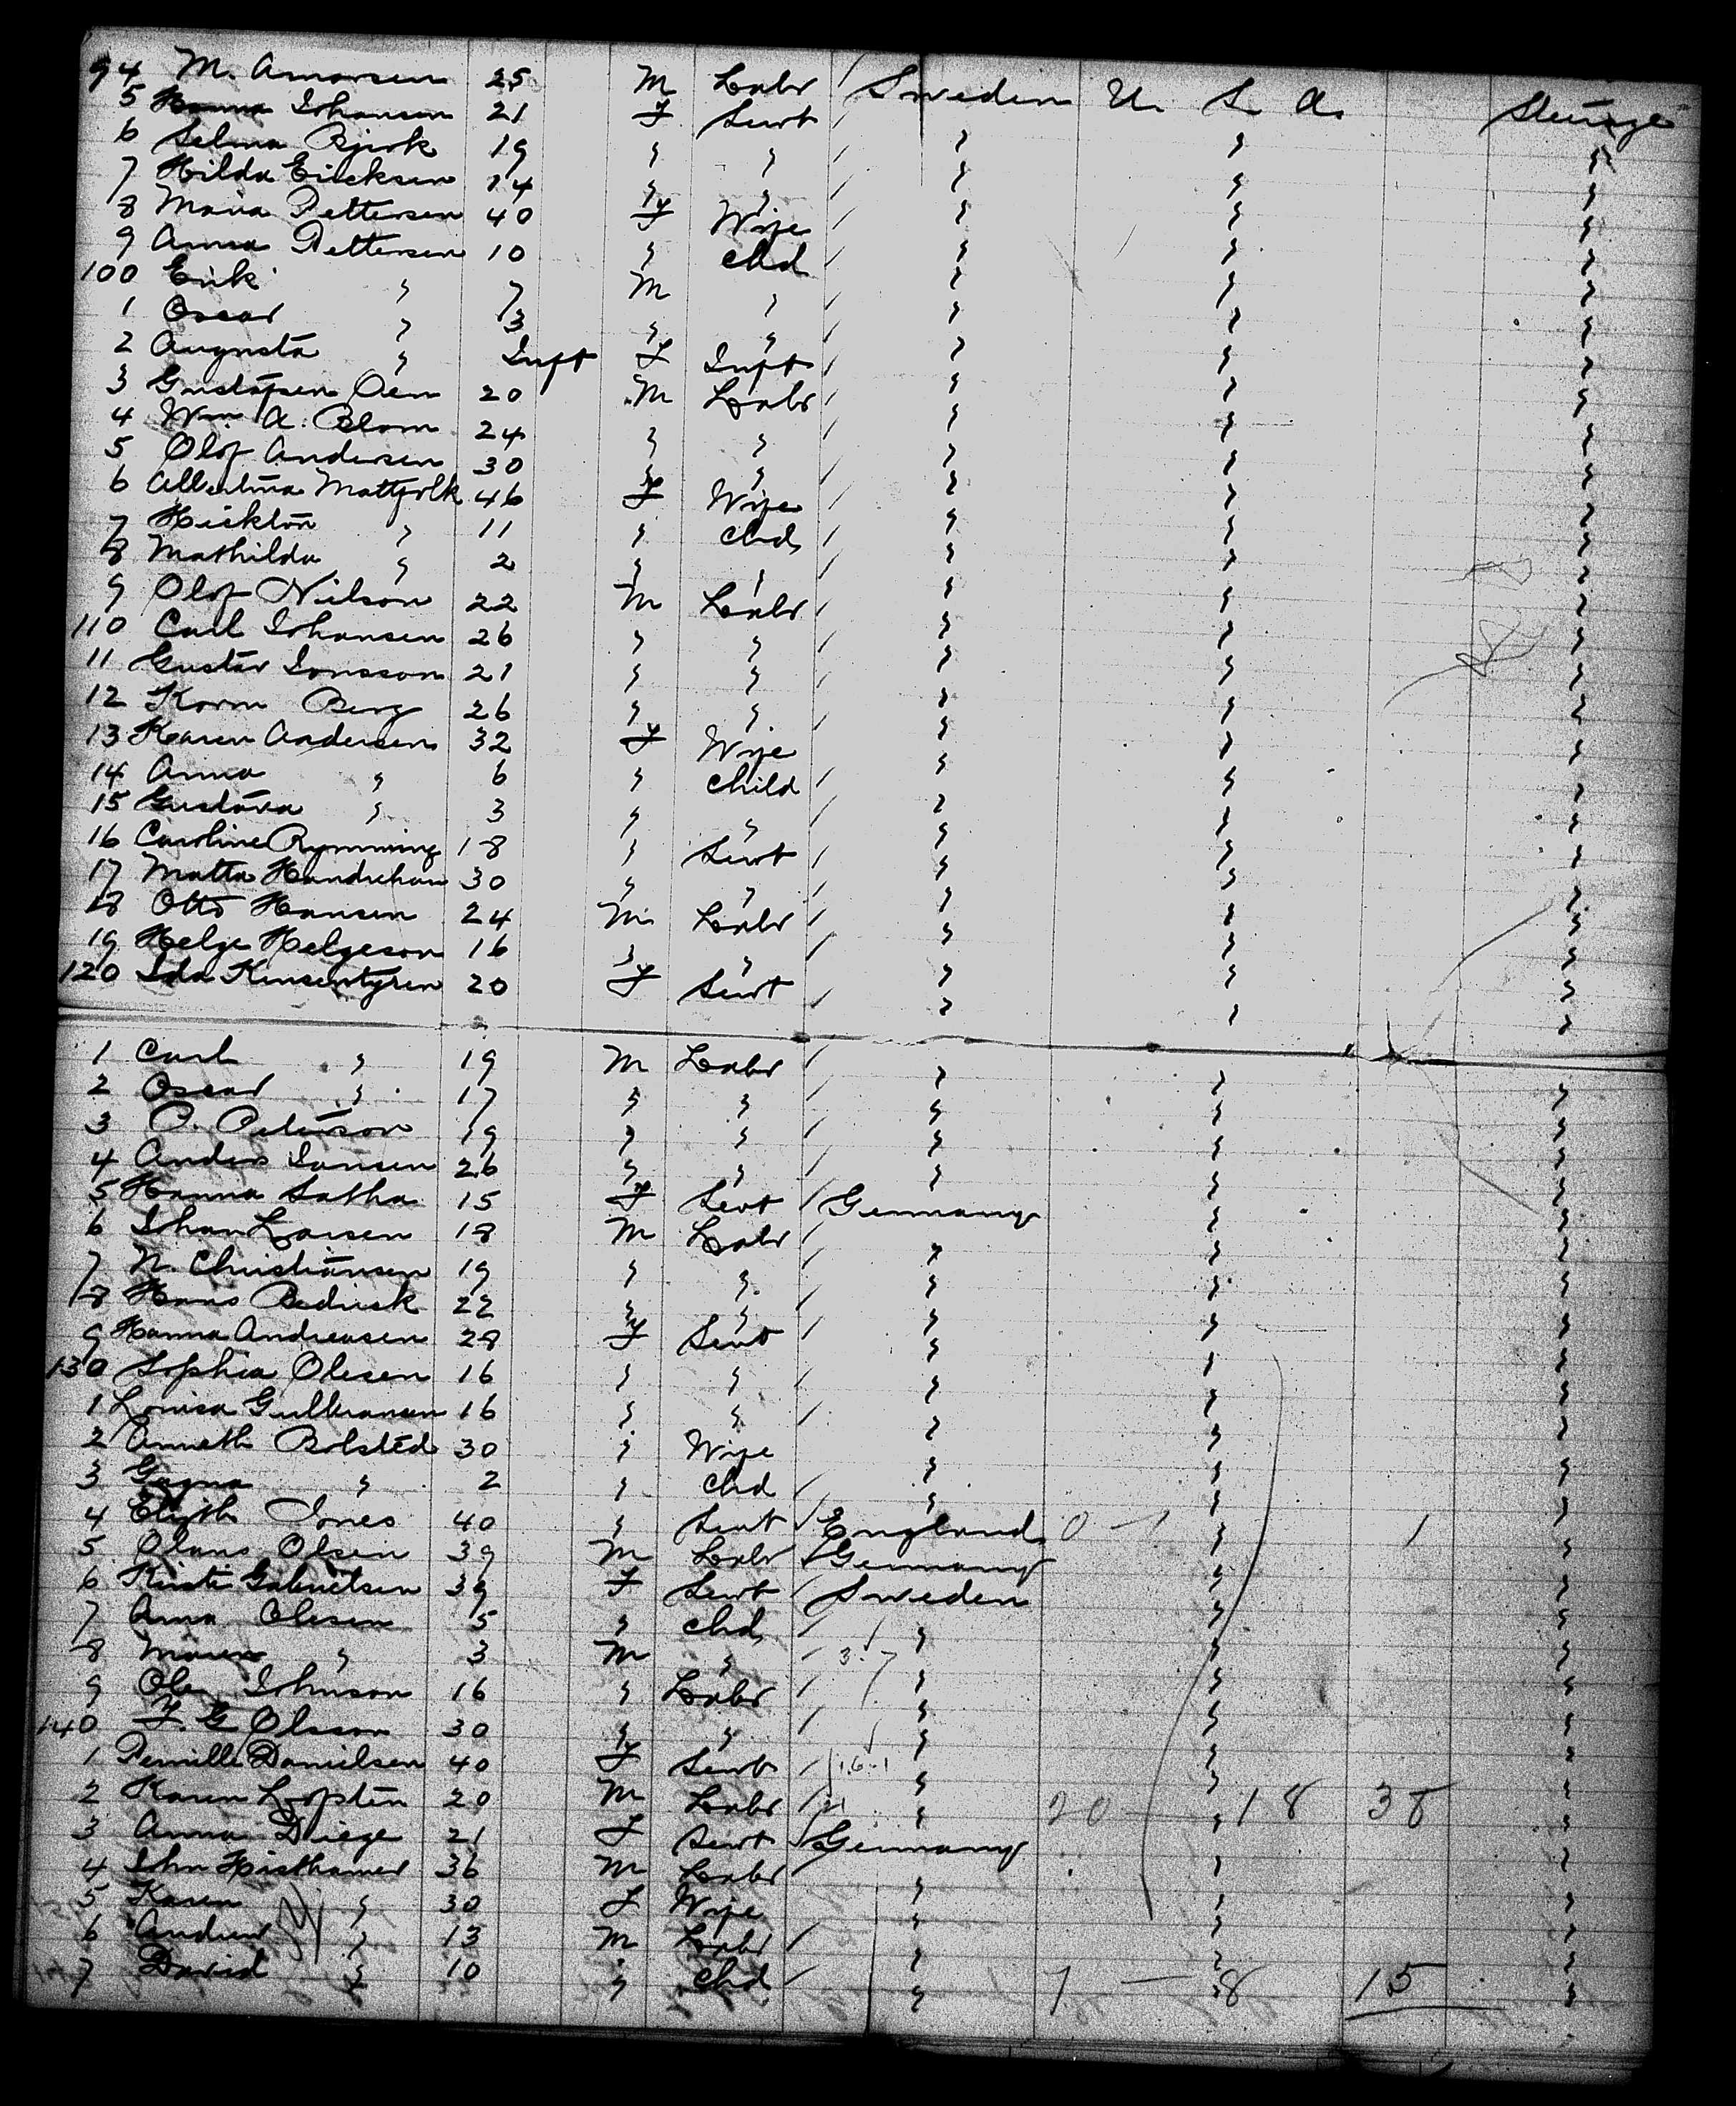 94 M. Amorsen 25 M Labr / Sweden U. S. A. Steerage
5 Hanna Johansen 21 F Servt / " " "
6 Selma Bjork 19 " " / " " "
7 Hilda Ericksen 14 " " / " " "
8 Maria Pettersen 40 F Wife / " " "
9 Anna Pettersen 10 " Chd / " " "
100 Erik " 7 M " / " " "
1 Oscar " 3 " " / " " "
2 Augusta " Inft F Inft / " " "
3 Gustafsen Oen 20 M Labr / " " "
4 Wm. A. Blom 24 " " / " " "
5 Olof Andersen 30 " " / " " "
6 Albertina 46 F Wife / " " "
7 " 11 " Chd / " " "
8 Mathilda " 2 " " / " " "
9 Olof Nielson 22 M Labr / " " "
110 Carl Johansen 26 " " / " " "
11 Gustav Jonsson 21 " " / " " "
12 Berg 26 " " / " " "
13 Karen Andersen 32 F Wife " " "
14 Anna " 6 " Child / " " "
15 Gustava " 3 " " / " " "
16 Caroline Rymming 18 " Servt / " " "
17 Matta 30 " " / " " "
18 Otto Hansen 24 M Labr / " " "
19 Helge Helgeson 16 " " / " " "
120 Ida 20 F Servt / " " "
1 Carl " 19 M Labr / " " "
2 Oscar " 17 " " / " " "
3 P. Peterson 19 " " / " " "
4 Anders Jansen 26 " " / " " "
5 Hanna Satha 15 F Servt / Germany " "
6 Johan Larsen 18 M Labr / " " "
7 N. Christiansen 19 " " / " " "
8 Hans 22 " " / " " "
9 Hanna Andreasen 28 F Servt / " " "
130 Sophia Olesen 16 " " " " "
1 Louisa Gulbransen 16 " " / " " "
2 Anneth Bolsted 30 " Wife " " "
3 " 2 " Chd / " " "
4 Jones 40 " Servt / England 0 — 1 " 1 "
5 Olaus Olsen 39 M Labr / Germany " "
6 Kirsti Gabrielsen 39 F Servt / Sweden " "
7 Anna Olesen 5 " Chd / " " "
8 " 3 M " / 3.7 " " "
9 Ole Johnson 16 " Labr / " " "
140 F. G. Olsson 30 " " / " " "
1 Pernille Danielsen 40 F Servt / 16.1 " " "
2 Karen Loften 20 M Labr / " 20 — " 18 38 "
3 Anna Driege 21 F Servt / Germany " "
4 Jhn 36 M Labr " " "
5 Karen " 30 F Wife " " "
6 Andrew " 13 M Labr / " " "
7 David " 10 " Chd / " 7 — 8 15 "